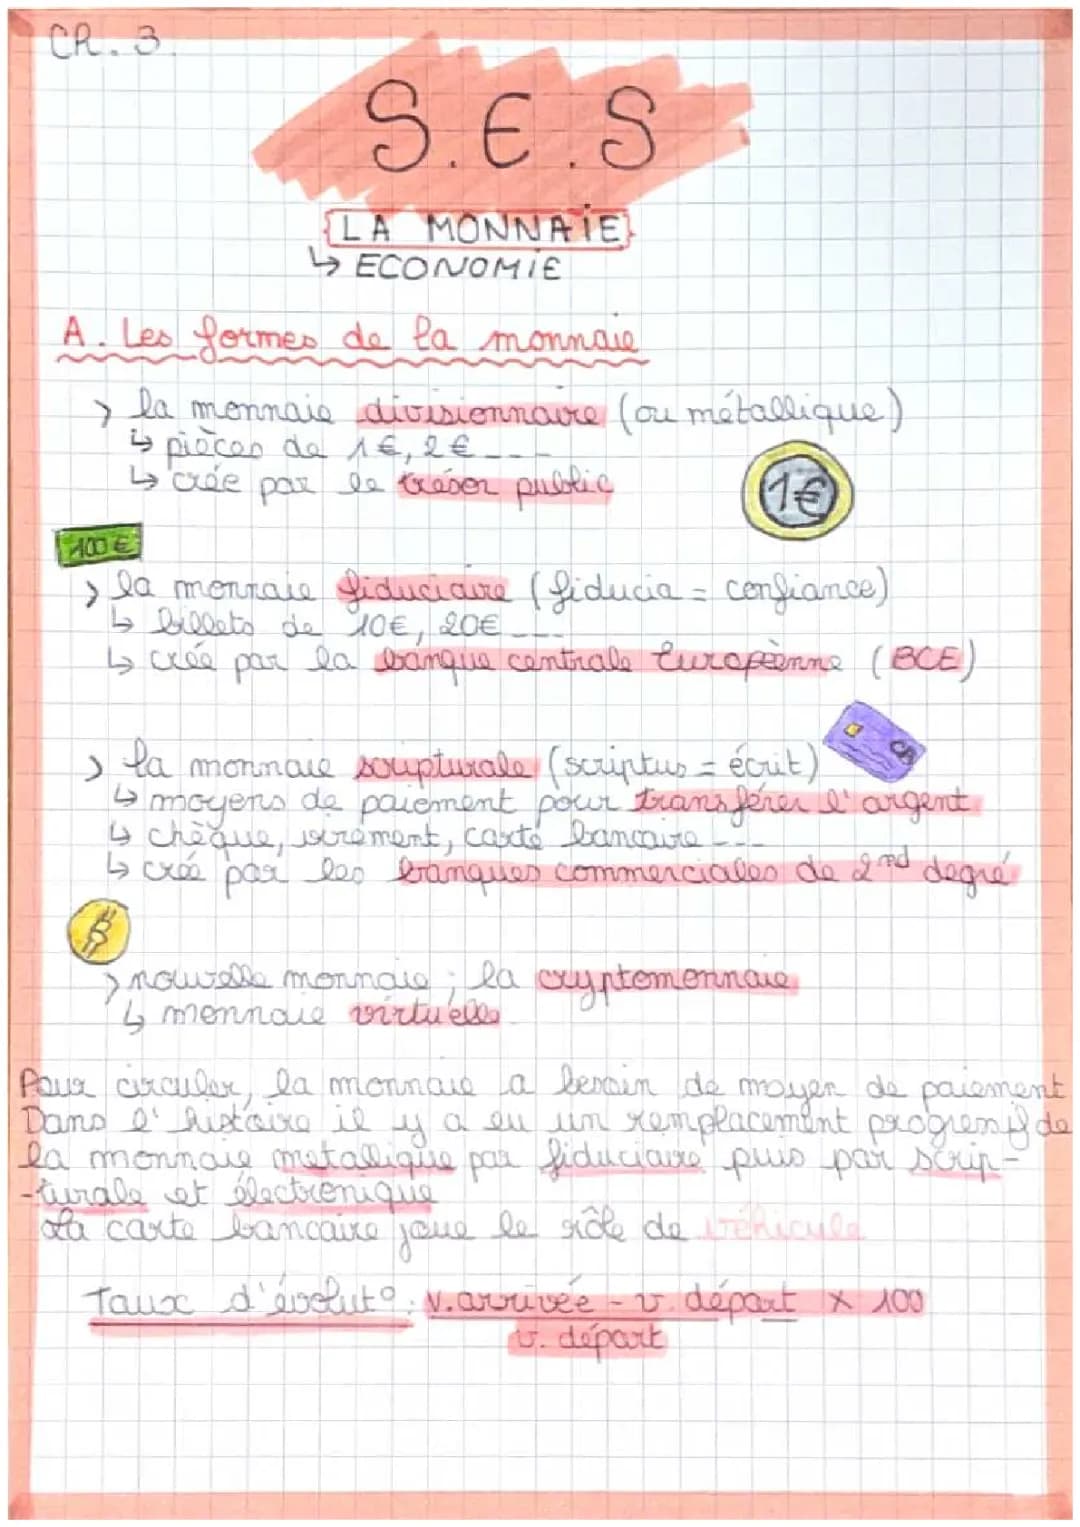 CR. 3.
S.E.S
LA MONNAIE
↳ ECONOMIE
A. Les formes de la monnaie
> la monnaie divisionnaire (ou métallique)
↳ pièces de 1€, 2€ ---
↳ crée par le trésor public
1€
100 €
> la monnaie fiduciaire (fiducia = confiance)
↳ billets de 10€, 20€ ---
↳ créé par la banque centrale Européenne (BCE)
> la monnaie scripturale (scriptus = écrit)
CB
↳ moyens de paiement pour transférer l'argent
↳ chèque, virement, carte bancaire ---
↳ créé par les banques commerciales de 2nd degré
B
> nouvelle monnaie ; la cryptomonnaie
↳ monnaie virtuelle
Pour circuler, la monnaie a besoin de moyen de paiement
Dans l'histoire il y a eu un remplacement progressif de
la monnaie métallique par fiduciaire puis par scrip-
-turale et électronique
La carte bancaire joue le rôle de véhicule
Taux d'évolut°: v.arrivée - v. départ x 100
v. départ